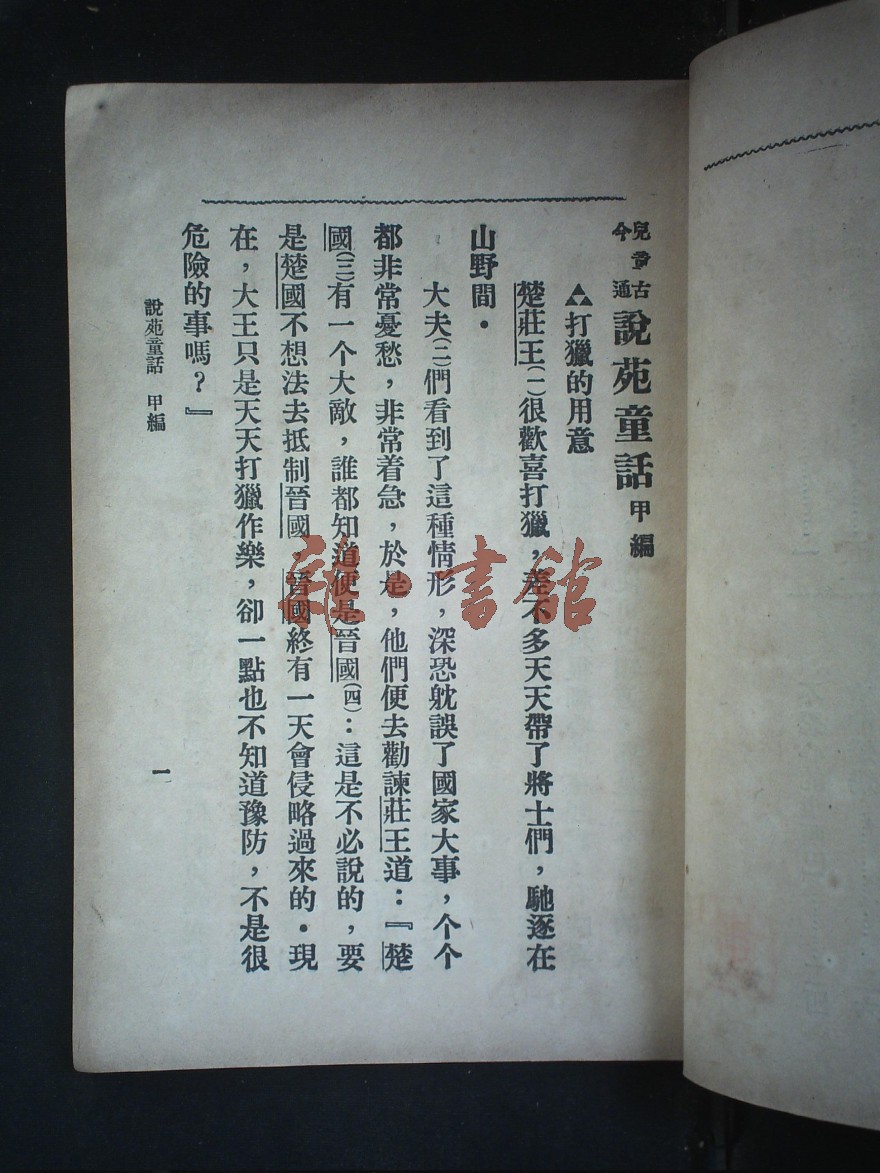 兒童古今通 說苑童話 甲編
打獵的用意
楚莊王(一)很歡喜打獵，差不多天天帶了將士們，馳逐在
山野間．
大夫(二)們看到了這種情形，深恐躭誤了國家大事，个个
都非常憂愁，非常着急，於是，他們便去勸諫莊王道：『楚
國(三)有一个大敵，誰都知道便是晉國(四)：這是不必說的，要
是楚國不想法去抵制晉國，晉國終有一天會侵略過來的．現
在，大王只是天天打獵作樂，卻一點也不知道豫防，不是很
危險的事嗎？』
說苑童話 甲編
一
雜·書館